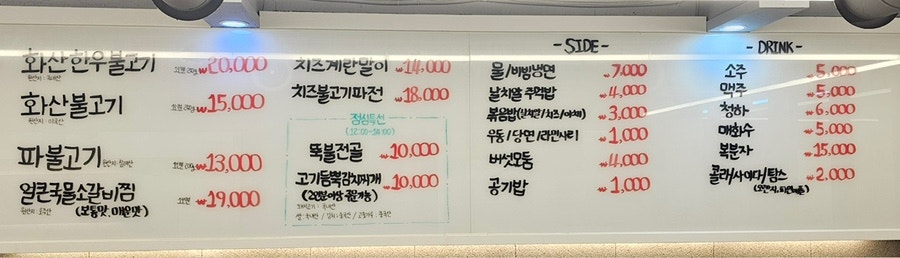 화산한우불고기 1인분 200g ₩20,000
원산지 : 국내산
화산불고기 ₩15,000
원산지 : 미국산
파불고기 ₩13,000
얼큰국물소갈비찜 1인분 ₩19,000
원산지 : 호주산 (보통맛, 매운맛)
치즈계란말이 ₩14,000
치즈불고기파전 ₩18,000
점심특선
(12:00~14:00)
뚝불전골 ₩10,000
고기듬뿍김치찌개 ₩10,000
(2인분이상 주문가능)
쌀 : 국내산 / 김치 : 중국산 / 고춧가루 : 중국산
- SIDE -
물/비빔냉면 ₩7,000
날치알 주먹밥 ₩4,000
볶음밥 ₩3,000
우동/당면/라면사리 ₩1,000
버섯모둠 ₩4,000
공기밥 ₩1,000
- DRINK -
소주 ₩5,000
맥주 ₩5,000
청하 ₩6,000
매화수 ₩5,000
복분자 ₩15,000
콜라/사이다/탐스 ₩2,000